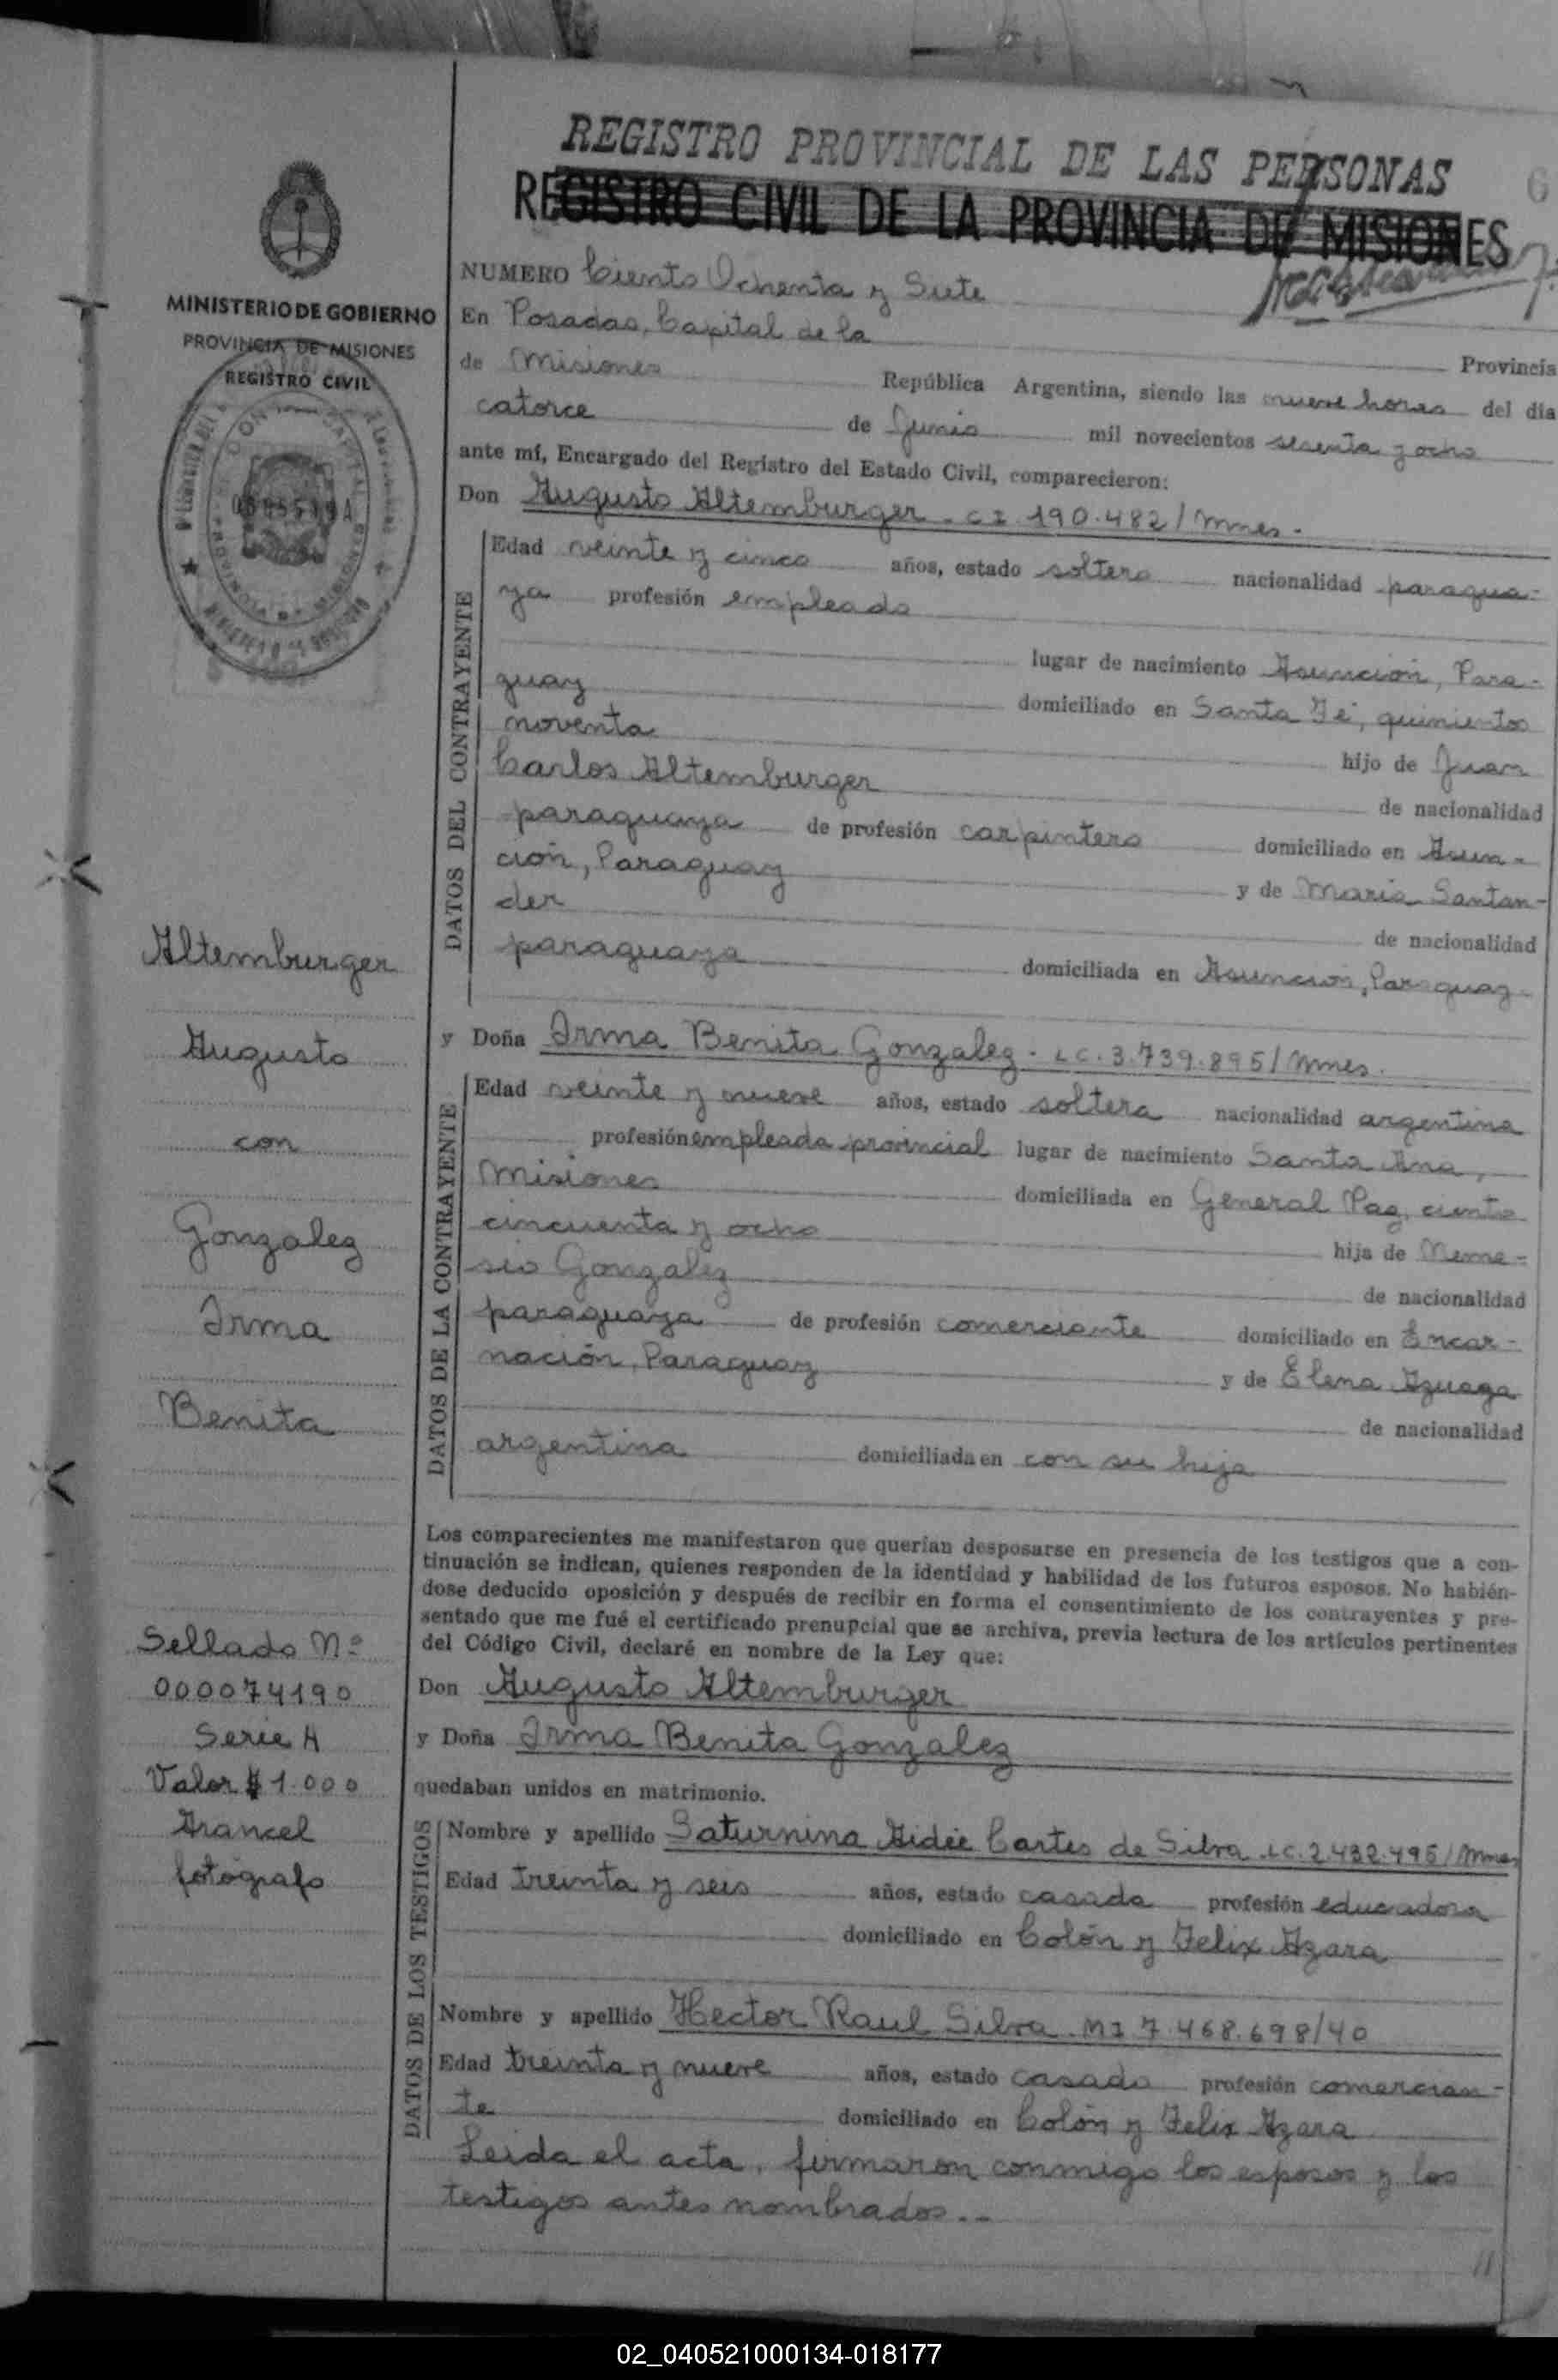 REGISTRO PROVINCIAL DE LAS PERSONAS
REGISTRO CIVIL DE LA PROVINCIA DE MISIONES
MINISTERIO DE GOBIERNO
PROVINCIA DE MISIONES
REGISTRO CIVIL
NUMERO Ciento Ochenta y Siete
En Posadas, Capital de la Provincia
de Misiones República Argentina, siendo las nueve horas del día
catorce de Junio mil novecientos sesenta y ocho
ante mí, Encargado del Registro del Estado Civil, comparecieron:
Don Augusto Altemburger - CI. 190.482/Mnes.-
DATOS DEL CONTRAYENTE
Edad veinte y cinco años, estado soltero nacionalidad paragua-
ya profesión empleado
lugar de nacimiento Asunción, Para-
guay domiciliado en Santa Fé, quinientos
noventa hijo de Juan
Carlos Altemburger de nacionalidad
paraguaya de profesión carpintero domiciliado en Asun-
ción, Paraguay y de Maria Santan-
der de nacionalidad
paraguaya domiciliada en Asunción, Paraguay-
y Doña Irma Benita Gonzalez - LC. 3.739.895/Mnes.
DATOS DE LA CONTRAYENTE
Edad veinte y nueve años, estado soltera nacionalidad argentina
profesión empleada provincial lugar de nacimiento Santa Ana,
Misiones domiciliada en General Paz, ciento
cincuenta y ocho hija de Neme-
sio Gonzalez de nacionalidad
paraguaya de profesión comerciante domiciliado en Encar-
nación, Paraguay y de Elena Azuaga
de nacionalidad
argentina domiciliada en con su hija
Los comparecientes me manifestaron que querían desposarse en presencia de los testigos que a con-
tinuación se indican, quienes responden de la identidad y habilidad de los futuros esposos. No habién-
dose deducido oposición y después de recibir en forma el consentimiento de los contrayentes y pre-
sentado que me fué el certificado prenupcial que se archiva, previa lectura de los artículos pertinentes
del Código Civil, declaré en nombre de la Ley que:
Don Augusto Altemburger
y Doña Irma Benita Gonzalez
quedaban unidos en matrimonio.
DATOS DE LOS TESTIGOS
Nombre y apellido Saturnina Aidée Cartes de Silva. LC. 2.432.495/Mnes
Edad treinta y seis años, estado casada profesión educadora
domiciliado en Colón y Felix Azara
Nombre y apellido Hector Raul Silva. MI 7.468.698/40
Edad treinta y nueve años, estado casado profesión comercian-
te domiciliado en Colón y Felix Azara
Leida el acta, firmaron conmigo los esposos y los
testigos antes nombrados.--
Altemburger
Augusto
con
Gonzalez
Irma
Benita
Sellado Nº
000074190
Serie A
Valor $ 1.000
Arancel
fotógrafo
02_040521000134-018177